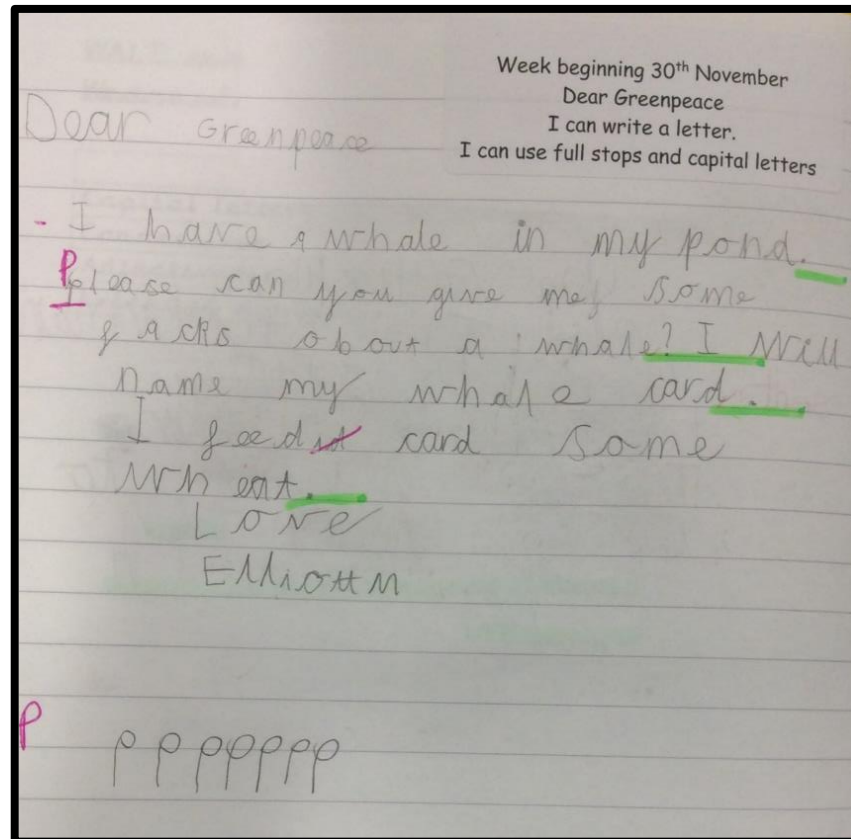 Week beginning 30th November
Dear Greenpeace
I can write a letter.
I can use full stops and capital letters
Dear Greenpeace
- I have a whale in my pond.
P
please can you give me some
facks about a whale? I will
name my whale card.
I feed it card some
wheat.
Love
Elliott M
P p p p p p p p